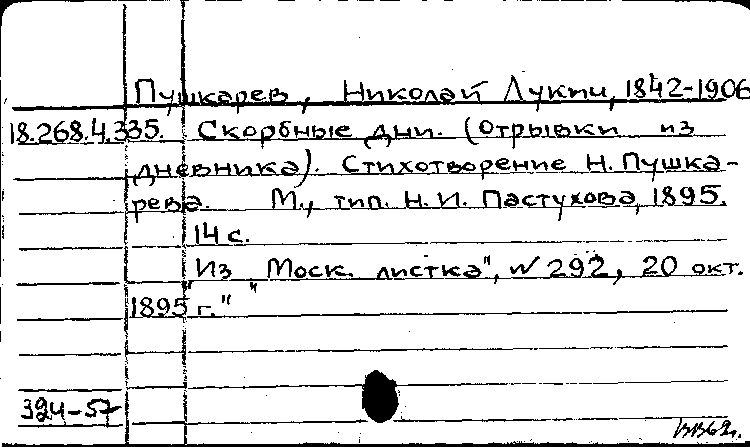 Пушкарев, Николай Лукич, 1842-1906
18.268.4.335. Скорбные дни. (Отрывки из
дневника). Стихотворение Н. Пушка-
рева. М., тип. Н. И. Пастухова, 1895.
14 с.
"Из "Моск. листка", № 292, 20 окт.
1895 г."
324-57